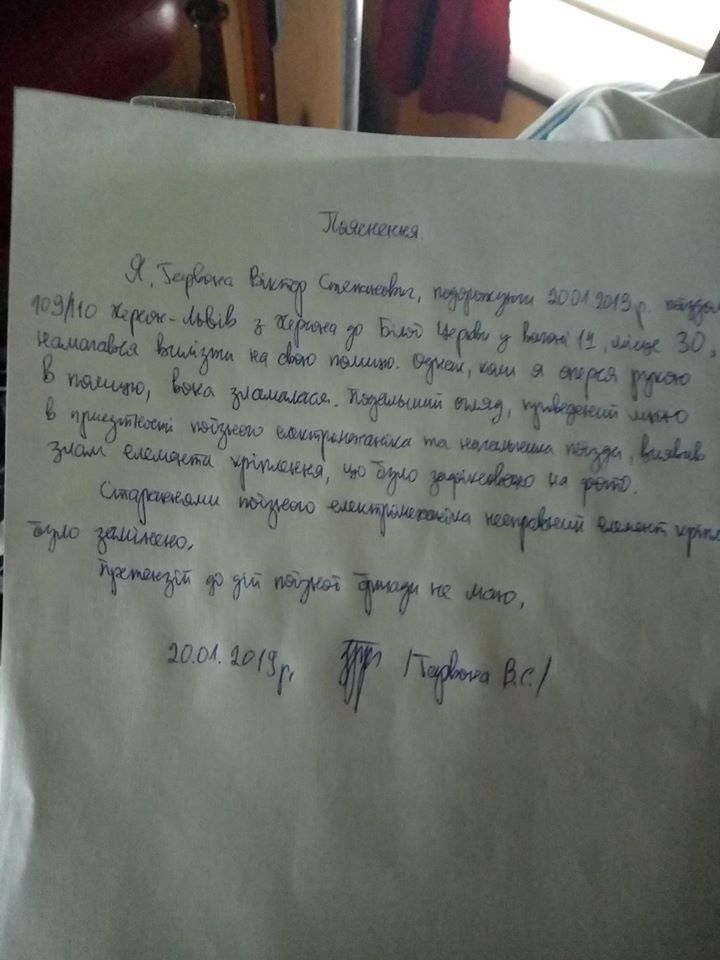 Пояснення
Я, Гарвона Віктор Степанович, подорожуючи 20.01.2019р. поїздом
109/110 Херсон-Львів з Херсона до Білої Церкви у вагоні 11, місце 30,
намагався вилізти на свою полицю. Однак, коли я оперся рукою
в полицю, вона зламалася. Подальший огляд, проведений мною
в присутності поїзного електромеханіка та начальника поїзда, виявив
злам елемента кріплення, що було зафіксовано на фото.
Стараннями поїзного електромеханіка несправний елемент кріпл
було замінено.
Претензій до дій поїзної бригади не маю.
20.01.2019р. /Гарвона В.С./